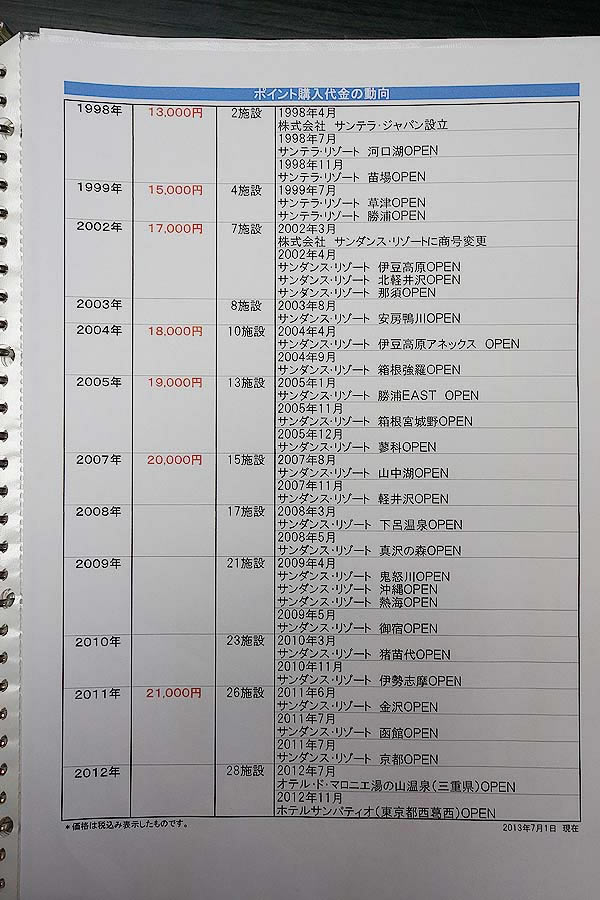 ポイント購入代金の動向
1998年 13,000円 2施設 1998年4月
株式会社 サンテラ・ジャパン設立
1998年7月
サンテラ・リゾート 河口湖OPEN
1998年11月
サンテラ・リゾート 苗場OPEN
1999年 15,000円 4施設 1999年7月
サンテラ・リゾート 草津OPEN
サンテラ・リゾート 勝浦OPEN
2002年 17,000円 7施設 2002年3月
株式会社 サンダンス・リゾートに商号変更
2002年4月
サンダンス・リゾート 伊豆高原OPEN
サンダンス・リゾート 北軽井沢OPEN
サンダンス・リゾート 那須OPEN
2003年 8施設 2003年8月
サンダンス・リゾート 安房鴨川OPEN
2004年 18,000円 10施設 2004年4月
サンダンス・リゾート 伊豆高原アネックス OPEN
2004年9月
サンダンス・リゾート 箱根強羅OPEN
2005年 19,000円 13施設 2005年1月
サンダンス・リゾート 勝浦EAST OPEN
2005年11月
サンダンス・リゾート 箱根宮城野OPEN
2005年12月
サンダンス・リゾート 蓼科OPEN
2007年 20,000円 15施設 2007年8月
サンダンス・リゾート 山中湖OPEN
2007年11月
サンダンス・リゾート 軽井沢OPEN
2008年 17施設 2008年3月
サンダンス・リゾート 下呂温泉OPEN
2008年5月
サンダンス・リゾート 真沢の森OPEN
2009年 21施設 2009年4月
サンダンス・リゾート 鬼怒川OPEN
サンダンス・リゾート 沖縄OPEN
サンダンス・リゾート 熱海OPEN
2009年5月
サンダンス・リゾート 御宿OPEN
2010年 23施設 2010年3月
サンダンス・リゾート 猪苗代OPEN
2010年11月
サンダンス・リゾート 伊勢志摩OPEN
2011年 21,000円 26施設 2011年6月
サンダンス・リゾート 金沢OPEN
2011年7月
サンダンス・リゾート 函館OPEN
2011年7月
サンダンス・リゾート 京都OPEN
2012年 28施設 2012年7月
オテル・ド・マロニエ湯の山温泉(三重県)OPEN
2012年11月
ホテルサンパティオ(東京都西葛西)OPEN
*価格は税込み表示したものです。 2013年7月1日 現在